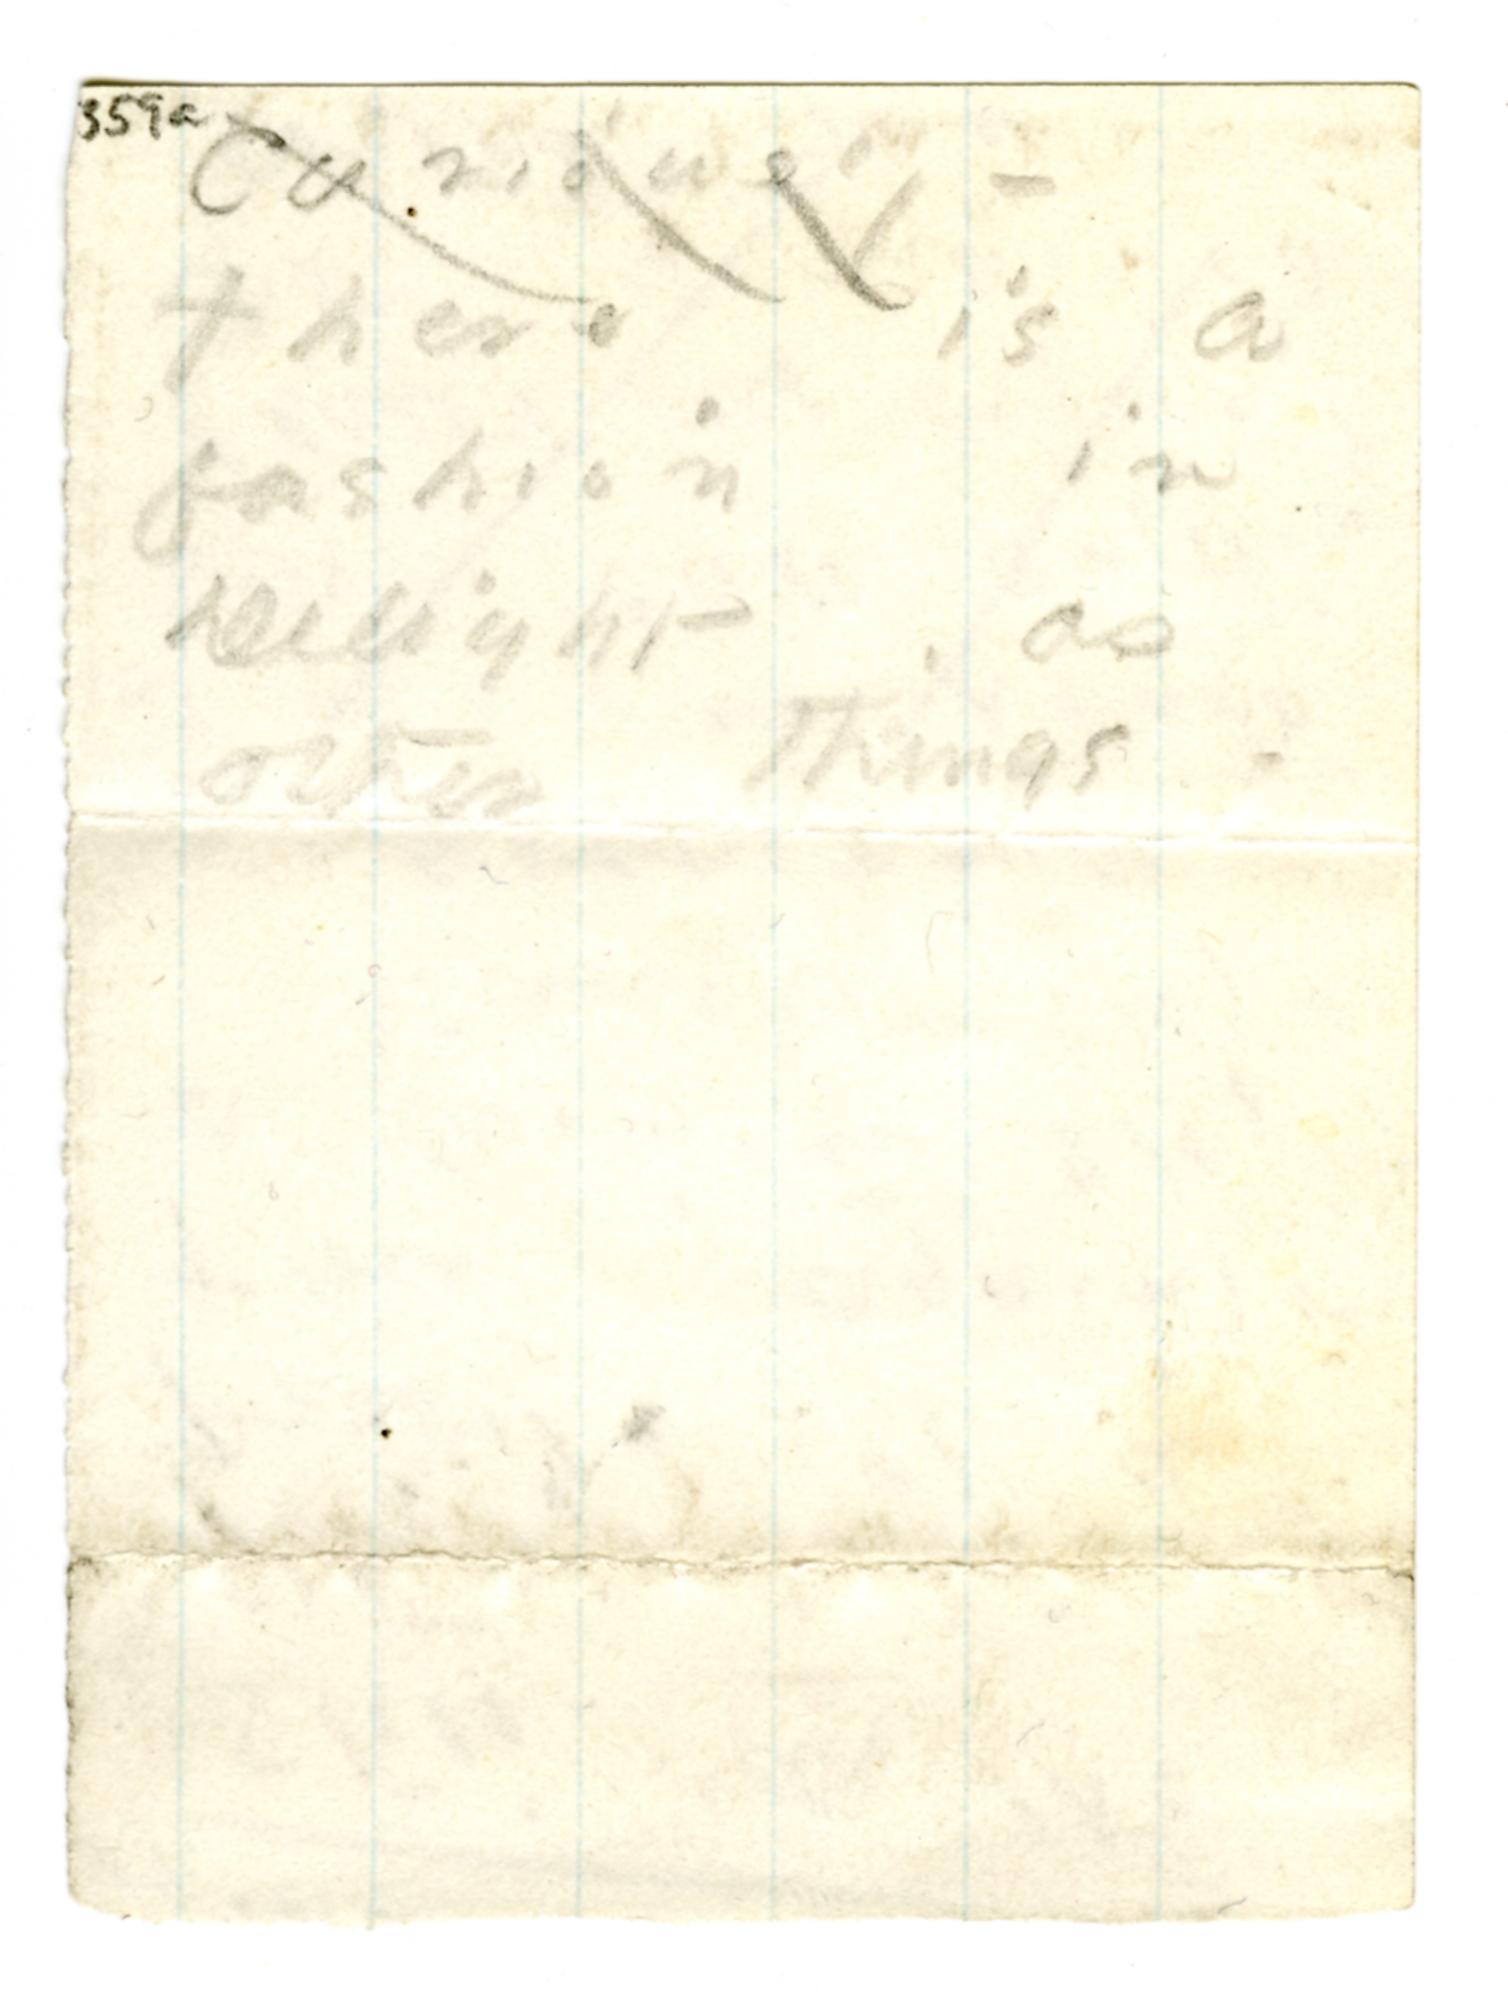 359a
Curiously -
there is a
fashion in
delight , as
other things -